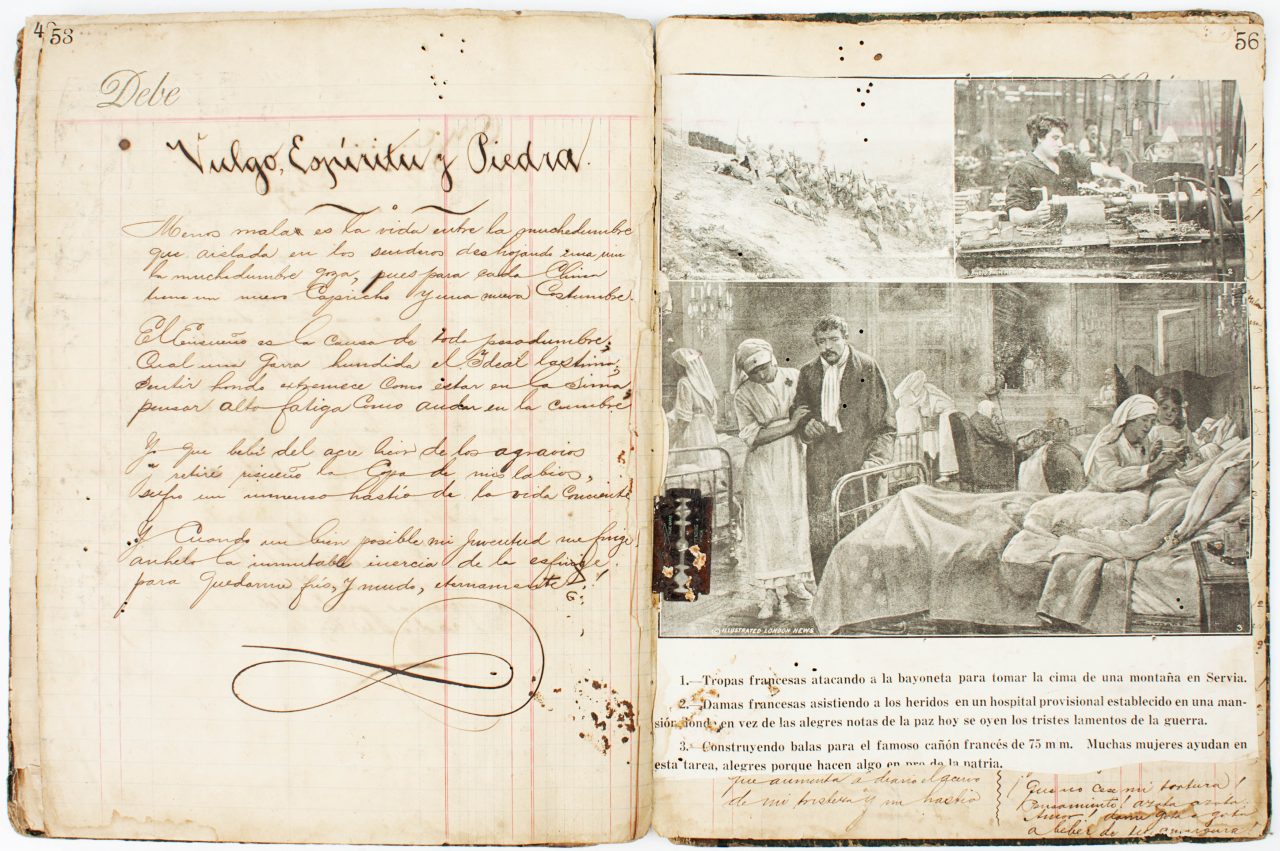 4
53
Debe
Vulgo, Espíritu y Piedra.
Menos mala es la vida entre la muchedumbre
que aislada en los senderos deshojando una rim
la muchedumbre goza, pues para cada Clima
tiene un nuevo Capricho y una nueva Costumbre.
El Ensueño es la causa de toda pesadumbre;
Cual una garra hundida el Ideal lastima,
sentir hondo extremece como estar en la Sima
pensar alto fatiga como andar en la cumbre
Yo que bebí del acre licor de los agravios
y retiré risueño la Copa de mis labios,
sufro un inmenso hastío de la vida Conciente
Y Cuando un bien posible mi juventud me finge,
anhelo la inmutable inercia de la esfinge
para quedarme frío, y mudo, eternamente!
56
2
© ILLUSTRATED LONDON NEWS
3
1.—Tropas francesas atacando a la bayoneta para tomar la cima de una montaña en Servia.
2.—Damas francesas asistiendo a los heridos en un hospital provisional establecido en una man-
sión donde en vez de las alegres notas de la paz hoy se oyen los tristes lamentos de la guerra.
3.—Construyendo balas para el famoso cañón francés de 75 m m. Muchas mujeres ayudan en
esta tarea, alegres porque hacen algo en pro de la patria.
que aumenta a diario el acervo
de mi tristeza y mi hastío
¡Que no cese mi tortura!
Pensamiento! azota azota
Amor! dame gota a gota
a beber de tu amargura!